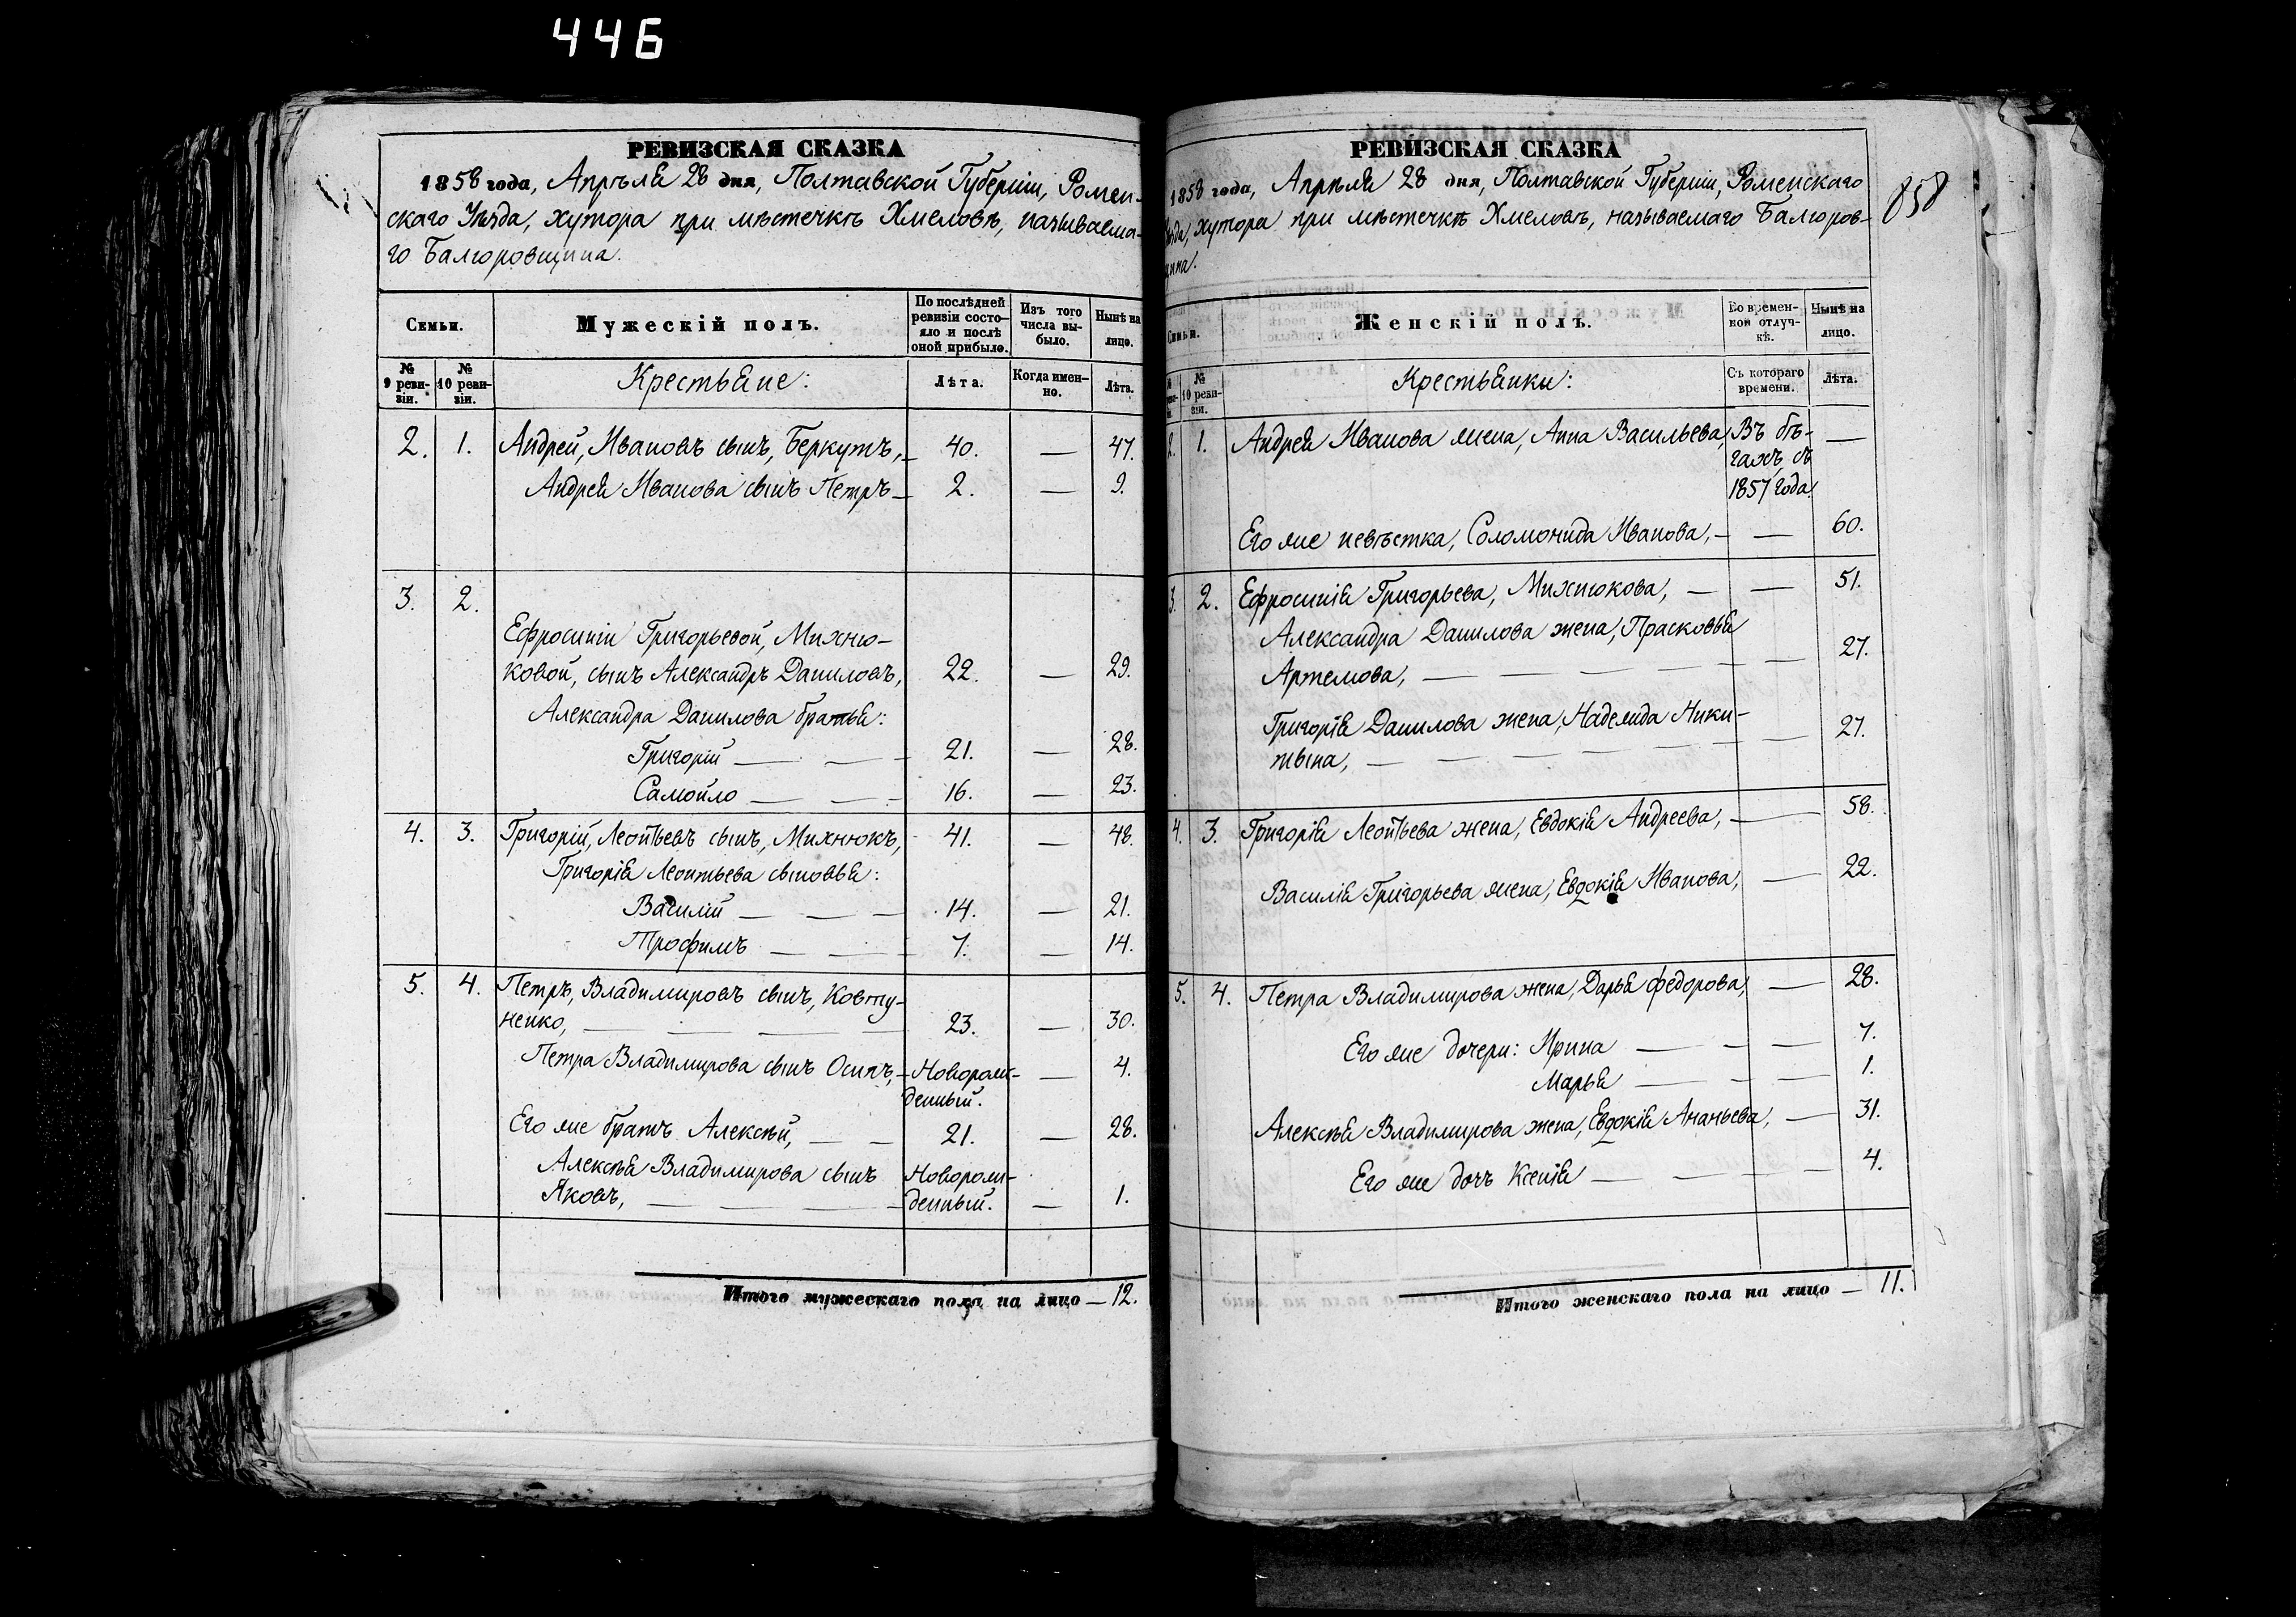 446
РЕВИЗСКАЯ СКАЗКА
1858 года, Апрѣля 28 дня, Полтавской Губерніи, Ромен-
скаго Уѣзда, хутора при мѣстечкѣ Хмеловѣ, называема-
го Балюровщина.
Семьи.
Мужескій полъ.
По послѣдней
ревизіи состо-
яло и послѣ
оной прибыло.
Изъ того
числа вы-
было.
Нынѣ на
лицо.
№
9 реви-
зіи.
№
10 реви-
зіи.
Крестьяне:
Лѣта.
Когда имен-
но.
Лѣта.
2. 1. Андрей, Ивановъ сынъ, Беркутъ, — 40. — 47.
Андрея Иванова сынъ Петръ — 2. — 9.
3. 2.
Ефросиніи Григорьевой, Михню-
ковой, сынъ Александръ Даниловъ, 22. — 29.
Александра Данилова братья:
Григорій — — — 21. — 28.
Самойло — — — 16. — 23.
4. 3. Григорій, Леонтьевъ сынъ, Михнюкъ, 41. — 48.
Григорія Леонтьева сыновья:
Василій — — — 14. — 21.
Трофимъ — — — 7. — 14.
5. 4. Петръ, Владимировъ сынъ, Ковту-
ненко, — — — — 23. — 30.
Петра Владимирова сынъ Осипъ, — Новорож- — 4.
денный.
Его же братъ Алексѣй, — — 21. — 28.
Алексѣя Владимирова сынъ Новорож-
Яковъ, — — — — денный. — 1.
Итого мужескаго пола на лицо — 12.
РЕВИЗСКАЯ СКАЗКА
1858 года, Апрѣля 28 дня, Полтавской Губерніи, Роменскаго
хутора при мѣстечкѣ Хмеловѣ, называемаго Балюров-
щина.
858
Семьи.
Женскій полъ.
Во времен-
ной отлуч-
кѣ.
Нынѣ на
лицо.
№
10 реви-
зіи.
Крестьянки:
Съ котораго
времени.
Лѣта.
2. 1. Андрея Иванова жена, Анна Васильева, Въ бѣ- —
гахъ съ
1857 года.
Его же невѣстка, Соломонида Иванова, — — 60.
3. 2. Ефросинія Григорьева, Михнюкова, — — 51.
Александра Данилова жена, Прасковья
Артемова, — — — — — 27.
Григорія Данилова жена, Надежда Ники-
тына, — — — — — 27.
4. 3. Григорія Леонтьева жена, Евдокія Андреева, — 58.
Василія Григорьева жена, Евдокія Иванова, — 22.
5. 4. Петра Владимирова жена, Дарья Федорова, — 28.
Его же дочери: Ирина — — — 7.
Марья — — — 1.
Алексѣя Владимирова жена, Евдокія Ананьева, — 31.
Его же дочъ Ксенія — — — 4.
Итого женскаго пола на лицо — 11.